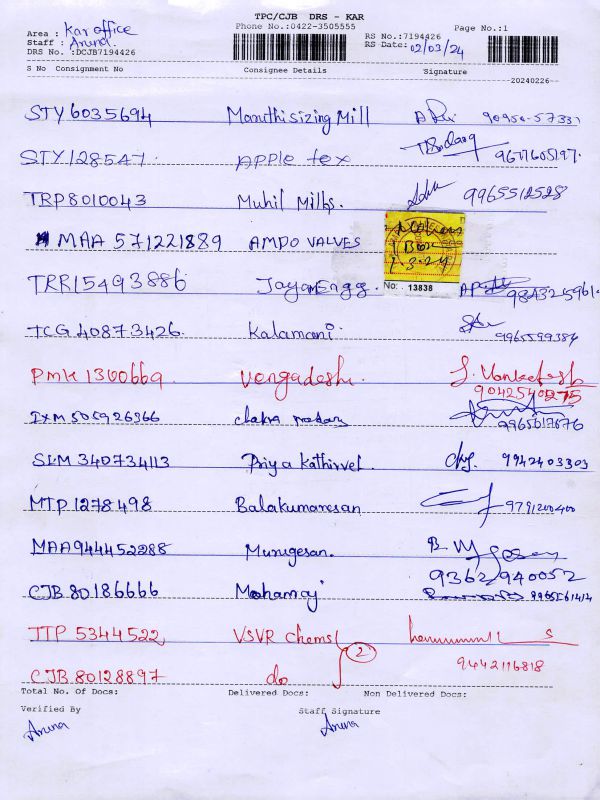 TPC/CJB DRS - KAR
Phone No.:0422-3505555
Page No.:1
Area : Kar office
Staff : Aruna.
DRS No. :DCJB7194426
RS No.:7194426
RS Date: 02/03/24
S No Consignment No Consignee Details Signature
20240226
STY 6035694 Maruthi sizing Mill 90950-57331
STY 128547. Apple tex 9677605197.
TRP 8010043 Muhil Mills. 9965512528
MAA 571221889 AMPO VALVES
1 Box
2.3.24
No: 13838
TRR 15493886 Jayam Engg.
TCG 40873426. Kalamani. 9965599384
PMK 1300669. Vengadesh. S. Venketesh
9042540275
IXM 505926966 9965617676
SLM 340734113 Priya Kathirvel. 9942403303
MTP 1278498 Balakumaresan 9791200400
MAA 944452288 Murugesan.
9362 940052
CJB 80186666 Mohanraj 9965561414
TTP 5344522 VSVR Chems 2
9442116818
CJB 80128897 do
Total No. Of Docs: Delivered Docs: Non Delivered Docs:
Verified By Staff Signature
Aruna Aruna